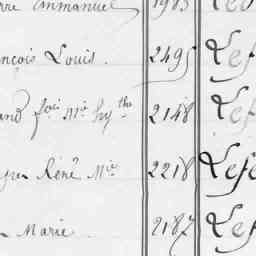 rre Emmanuel 1983 Leo
nçois Louis. 2495 Lef
and fois Mie hy the 2148 Lef
René Mie 2218 Lefe
Marie 2187 Lef